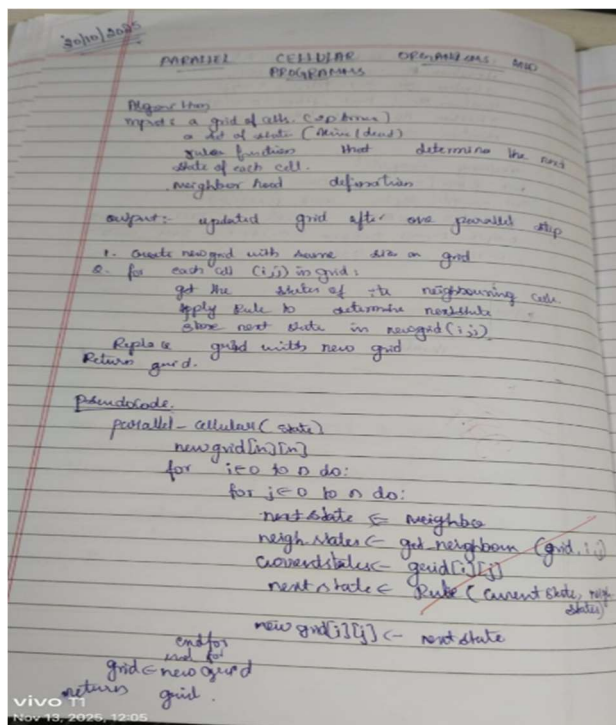 30/10/2025
PARALLEL CELLULAR ORGANISMS AND
PROGRAMMS
Algorithm
Inputs a grid of cells.
a set of state (Alive/dead)
rules function that determine the next
state of each cell.
neighbor hood
output:- updated grid after one parallel step
1. create newgrid with same size as grid
2. for each cell (i,j) in grid:
get the states of its neighbouring cells.
Apply Rule to determine nextstate
store next state in newgrid(i,j)
Replace grid with new grid
Return grid.
Pseudocode.
parallel-cellular(state)
newgrid[n][n]
for i←0 to n do:
for j←0 to n do:
nextstate ← neighbo
neigh states ← get_neighbours (grid, i,j)
← grid[i][j]
next state ← Rule (current state, neigh
states)
new grid[i][j] ← next state
endfor
end for
grid ← new grid
return grid.
vivo T1
Nov 13, 2025, 12:05